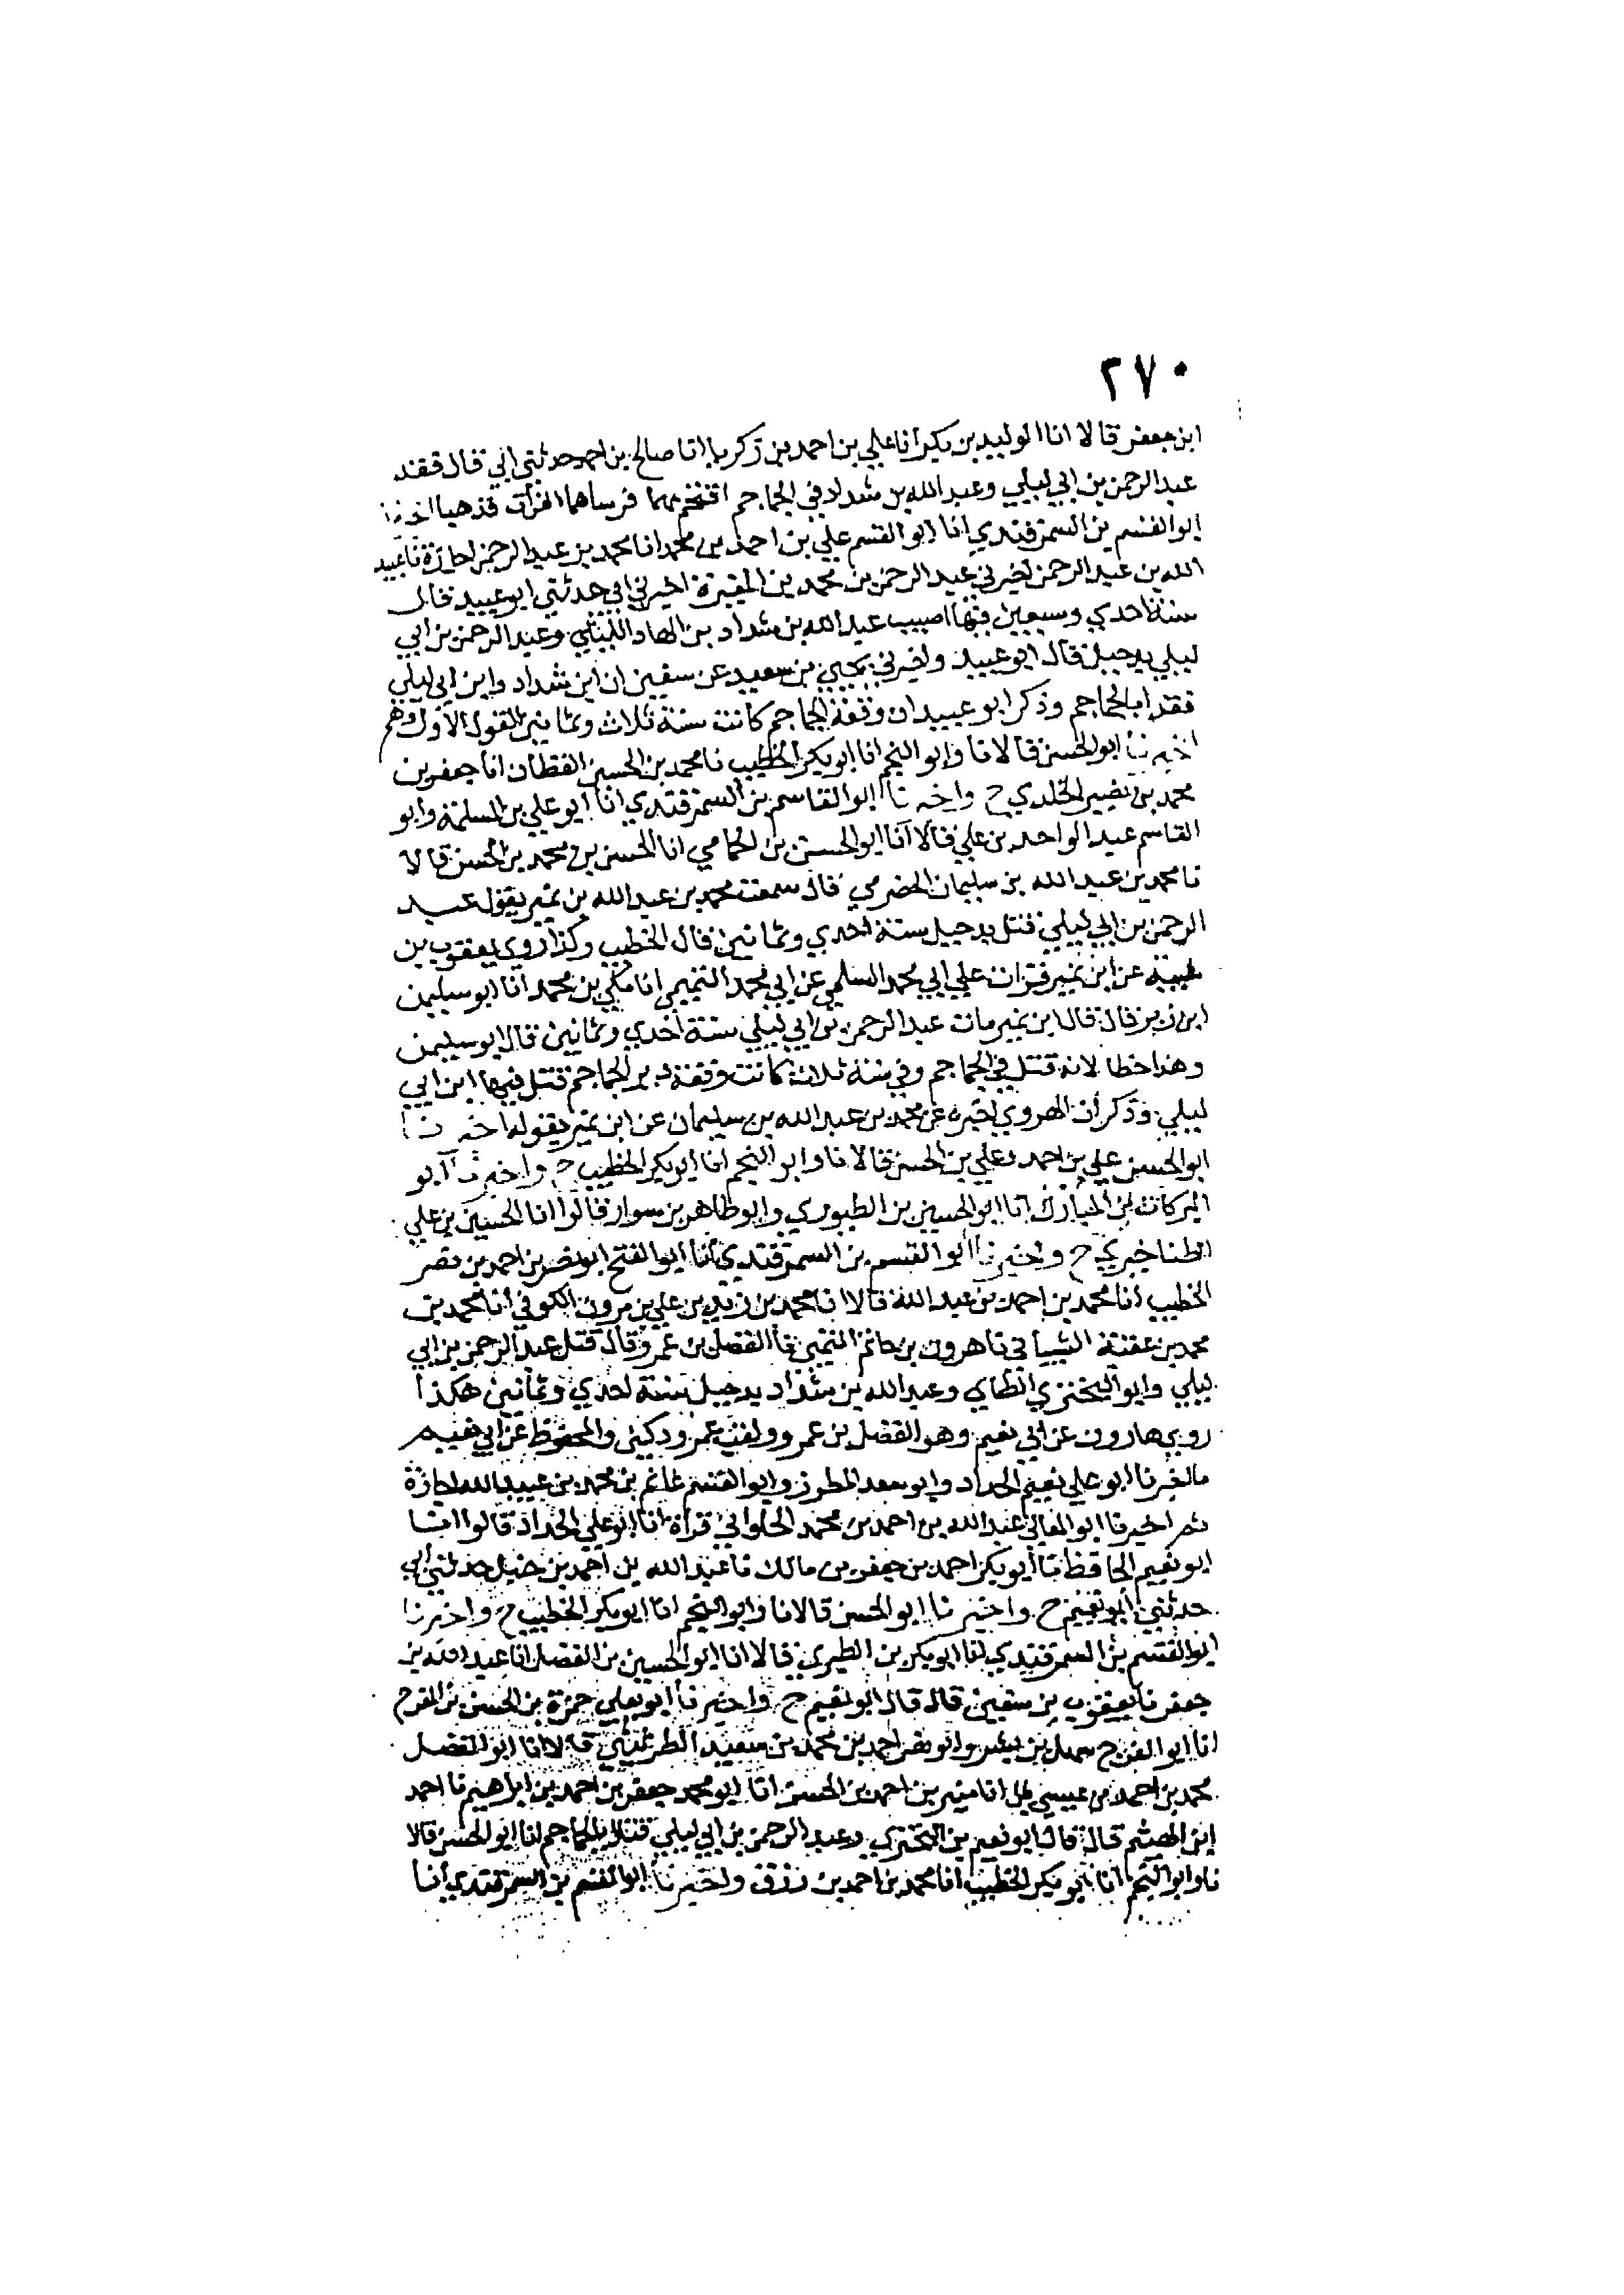 ٢٧٠
ابن جعفر قالا انا الوليد بن بكر انا علي بن احمد بن زكريا انا صالح بن احمد حدثني ابي قال فقد
عبد الرحمن بن ابي ليلي وعبد الله بن شداد في الجماجم اقتحم بهما فرساهما الفرات فذهبا اخبرنا
ابو القسم بن السمرقندي انا ابو القسم علي بن احمد بن محمد انا محمد بن عبد الرحمن اجازة نا عبيد
الله بن عبد الرحمن اخبرني عبد الرحمن بن محمد بن المغيرة اخبرني ابي حدثني ابو عبيد قال
سنة احدي وسبعين فيها اصيب عبد الله بن شداد بن الهاد الليثي وعبد الرحمن بن ابي
ليلي بدجيل قال ابو عبيد واخبرني يحيي بن سعيد عن سفين ان ابن شداد وابن ابي ليلي
فقدا بالجماجم وذكر ابو عبيد ان وقعة الجماجم كانت سنة ثلاث وثمانين القول الاول وهم
اخبرنا ابو الحسن قالا نا وابو النجم انا ابو بكر الخطيب نا محمد بن الحسين القطان انا جعفر بن
محمد بن نصير الخلدي ح واخبرنا ابو القاسم بن السمرقندي انا ابو علي بن المسلمة وابو
القاسم عبد الواحد بن علي قالا انا ابو الحسن بن الحمامي انا الحسن بن محمد بن الحسن قالا
نا محمد بن عبد الله بن سليمان الحضرمي قال سمعت محمد بن عبد الله بن نمير يقول عبد
الرحمن بن ابي ليلي قتل بدجيل سنة احدي وثمانين قال الخطيب وكذا روي يعقوب بن
شيبة عن ابن نمير قرات علي ابي محمد السلمي عن ابي محمد التميمي انا مكي بن محمد انا ابو سليمن
ابن زبر قال قال ابن نمير مات عبد الرحمن بن ابي ليلي سنة احدي وثمانين قال ابو سليمن
وهذا خطا لانه قتل في الجماجم وفي سنة ثلاث كانت وقعة دير الجماجم قتل فيها ابن ابي
ليلي وذكر ان الهروي اخبره عن محمد بن عبد الله بن سليمان عن ابن نمير بقوله اخبرنا
ابو الحسن علي بن احمد وعلي بن الحسن قالا نا وابو النجم انا ابو بكر الخطيب ح واخبرنا ابو
البركات بن المبارك انا ابو الحسين بن الطيوري وابو طاهر بن سوار قالوا انا الحسين بن علي
الطناجيري ح واخبرنا ابو القسم بن السمرقندي انا ابو الفتح ابو نصر بن احمد بن نصر
الخطيب انا محمد بن احمد بن عبد الله قالا انا محمد بن زيد بن علي بن مرون الكوفي انا محمد بن
محمد بن عقبة الشيباني نا هرون بن حاتم التميمي نا الفضل بن عمرو قال قتل عبد الرحمن بن ابي
ليلي وابو البختري الطاي وعبد الله بن شداد بدجيل سنة احدي وثمانين هكذا
روي هارون عن ابي نعيم وهو الفضل بن عمرو ولقب عمرو دكين والمحفوظ عن ابي نعيم
ما اخبرنا ابو علي نعيم الحداد وابو سعد المطرز وابو القسم غانم بن محمد بن عبيد الله اجازة
ثم اخبرنا ابو المعالي عبد الله بن احمد بن محمد الحلواني قراة انا ابو علي الحداد قالوا انا
ابو نعيم الحافظ نا ابو بكر احمد بن جعفر بن مالك نا عبد الله بن احمد بن حنبل حدثني ابي
حدثني ابو نعيم ح واخبرنا ابو الحسن قالا نا وابو النجم انا ابو بكر الخطيب ح واخبرنا
ابو القسم بن السمرقندي انا ابو بكر بن الطبري قالا انا ابو الحسين بن الفضل انا عبد الله بن
جعفر نا يعقوب بن سفين قال قال ابو نعيم ح واخبرنا ابو يعلي حمزة بن الحسن بن المفرج
انا ابو الفرج سهل بن بشر وابو نصر احمد بن محمد بن سعيد الطريثيثي قالا انا ابو الفضل
محمد بن احمد بن عيسي انا منير بن احمد بن الحسن انا ابو محمد جعفر بن احمد بن ابراهيم نا احمد
ابن الهيثم قال قال ابو نعيم بن البختري وعبد الرحمن بن ابي ليلي قتلا بالجماجم انا ابو الحسن قالا
نا وابو النجم انا ابو بكر الخطيب انا محمد بن احمد بن رزق واخبرنا ابو القسم بن السمرقندي انا